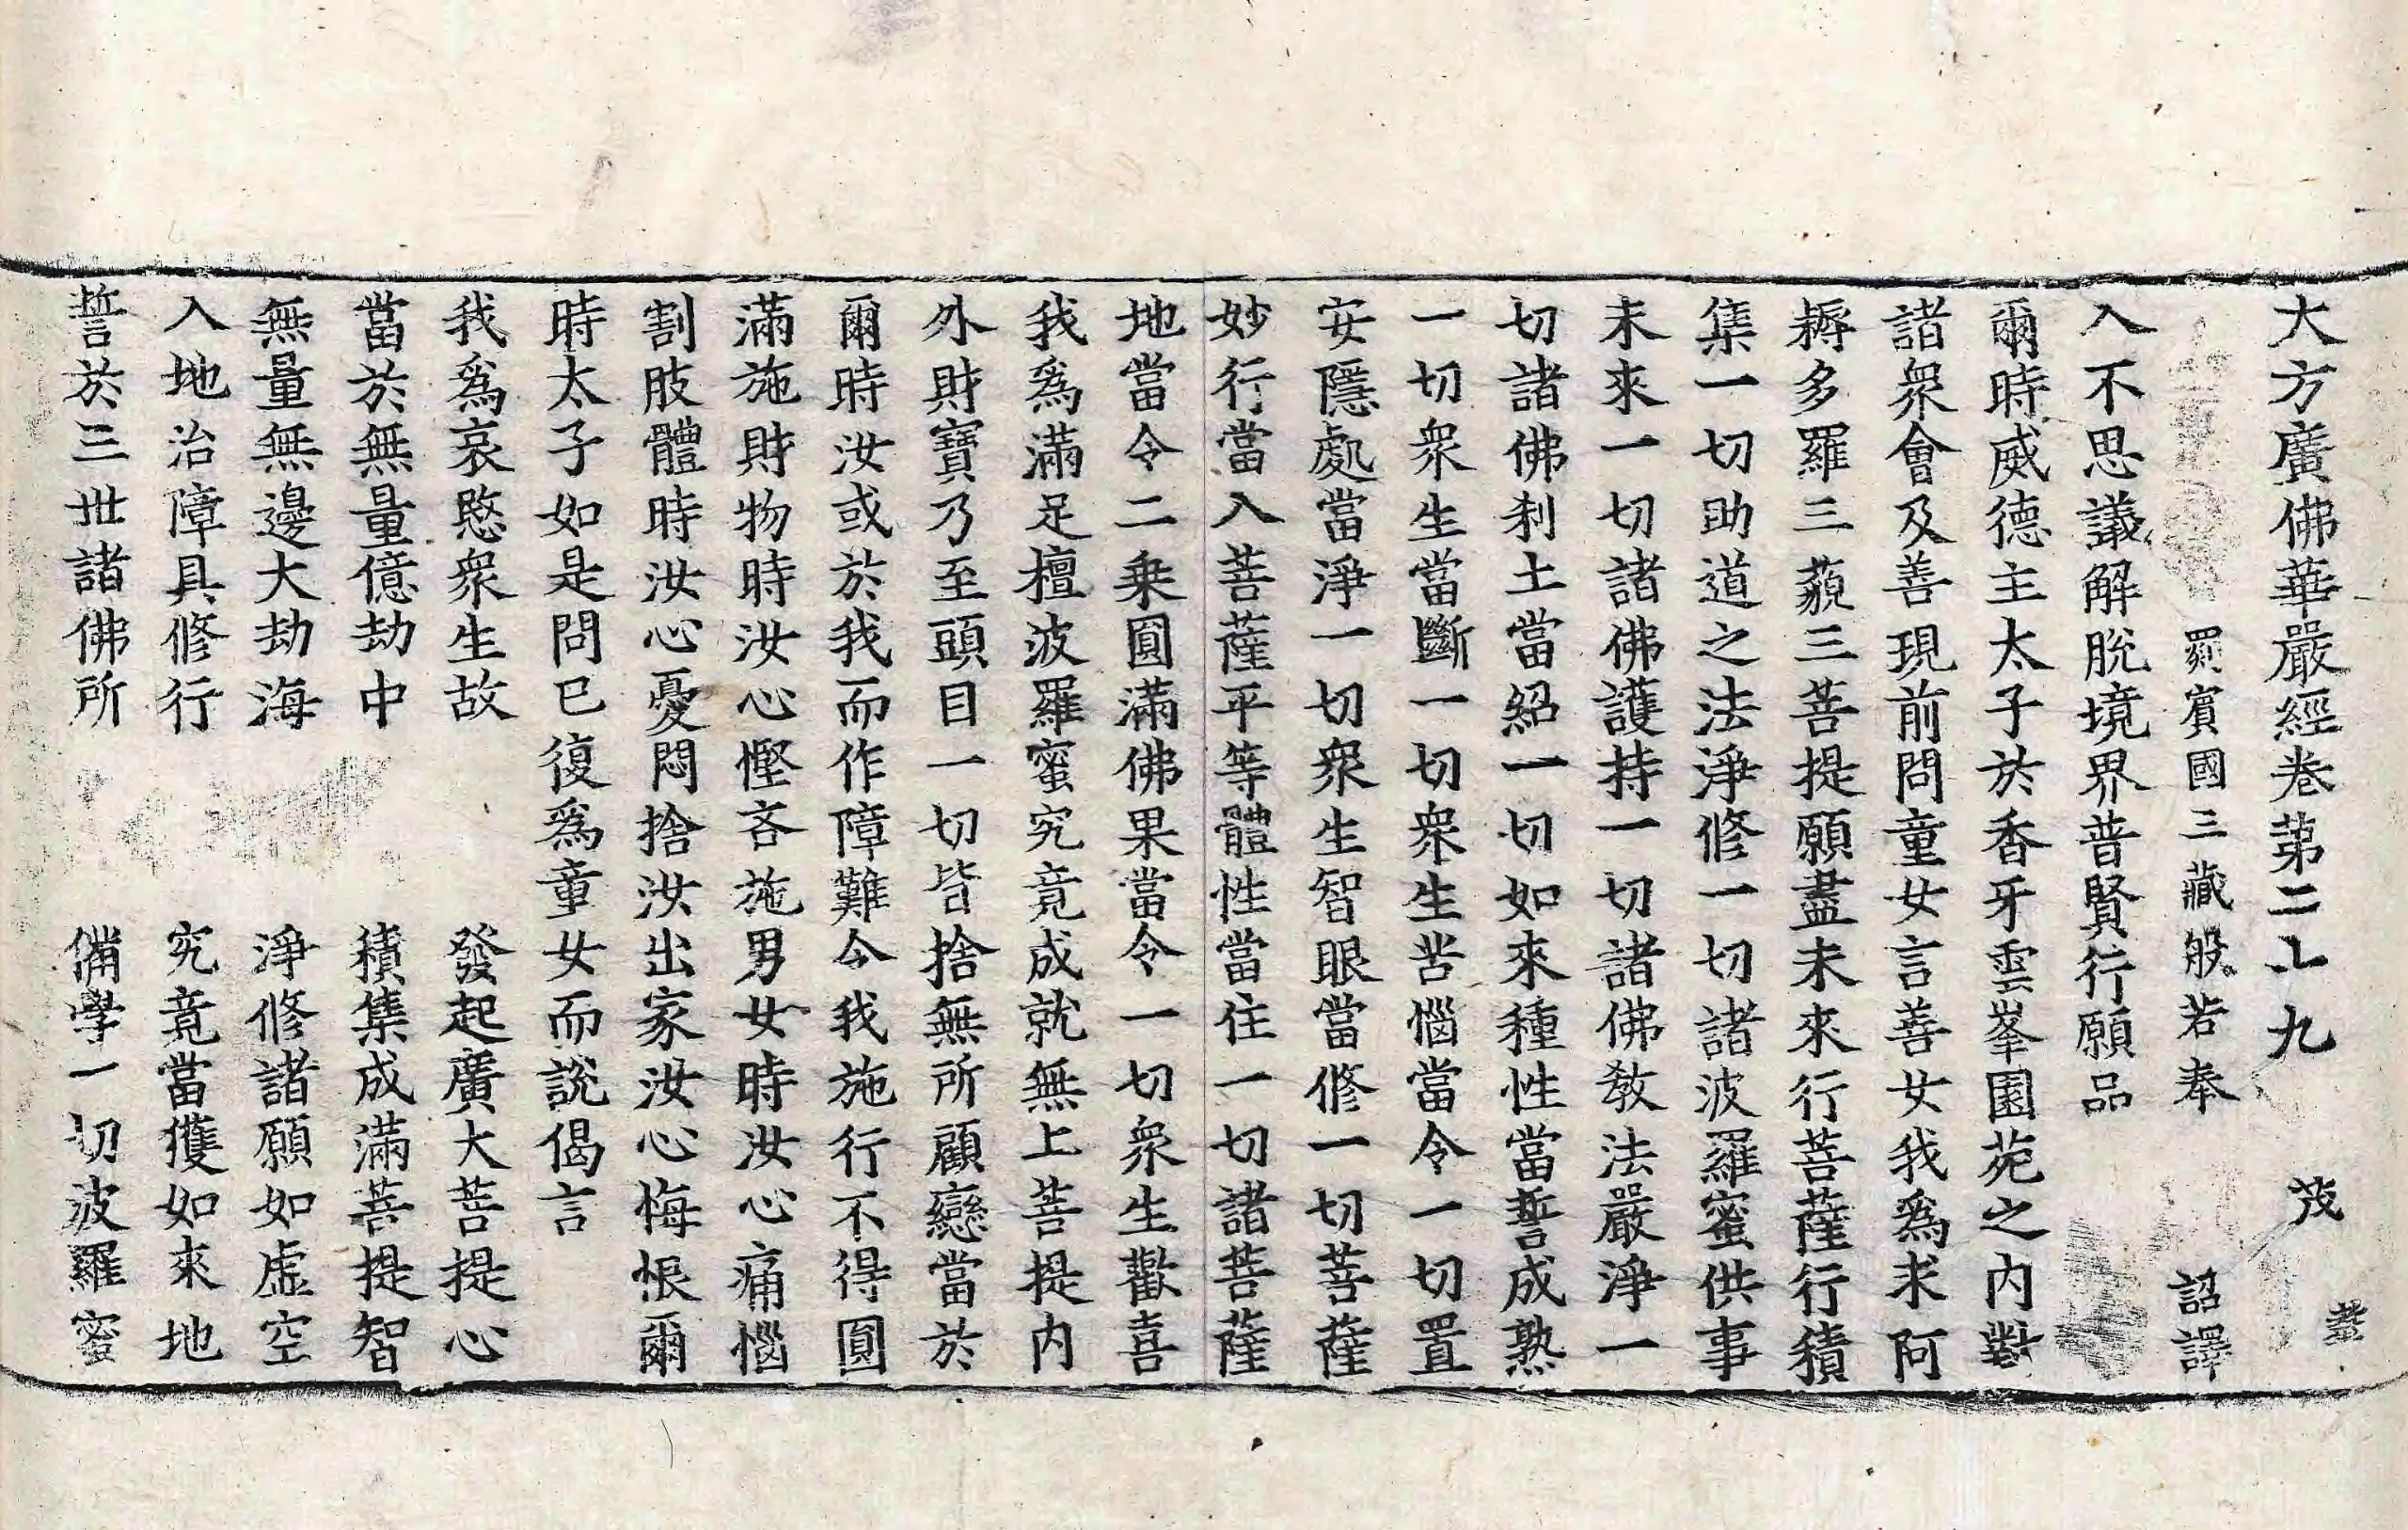 大方廣佛華嚴經卷第二十九 茂
罽賓國三藏般若奉 詔譯
入不思議解脫境界普賢行願品
爾時威德主太子於香牙雲峯園苑之內對
諸衆會及善現前問童女言善女我爲求阿
耨多羅三藐三菩提願盡未來行菩薩行積
集一切助道之法淨修一切諸波羅蜜供事
未來一切諸佛護持一切諸佛教法嚴淨一
切諸佛刹土當紹一切如來種性當誓成熟
一切衆生當斷一切衆生苦惱當令一切置
安隱處當淨一切衆生智眼當修一切菩薩
妙行當入菩薩平等體性當住一切諸菩薩
地當令二乗圓滿佛果當令一切衆生歡喜
我爲滿足檀波羅蜜究竟成就無上菩提內
外財寶乃至頭目一切皆捨無所顧戀當於
爾時汝或於我而作障難令我施行不得圓
滿施財物時汝心慳吝施男女時汝心痛惱
割肢體時汝心憂悶捨汝出家汝心悔恨爾
時太子如是問已復爲童女而說偈言
我爲哀愍衆生故 發起廣大菩提心
當於無量億劫中 積集成滿菩提智
無量無邊大劫海 淨修諸願如虛空
入地治障具修行 究竟當獲如來地
誓於三世諸佛所 備學一切波羅蜜